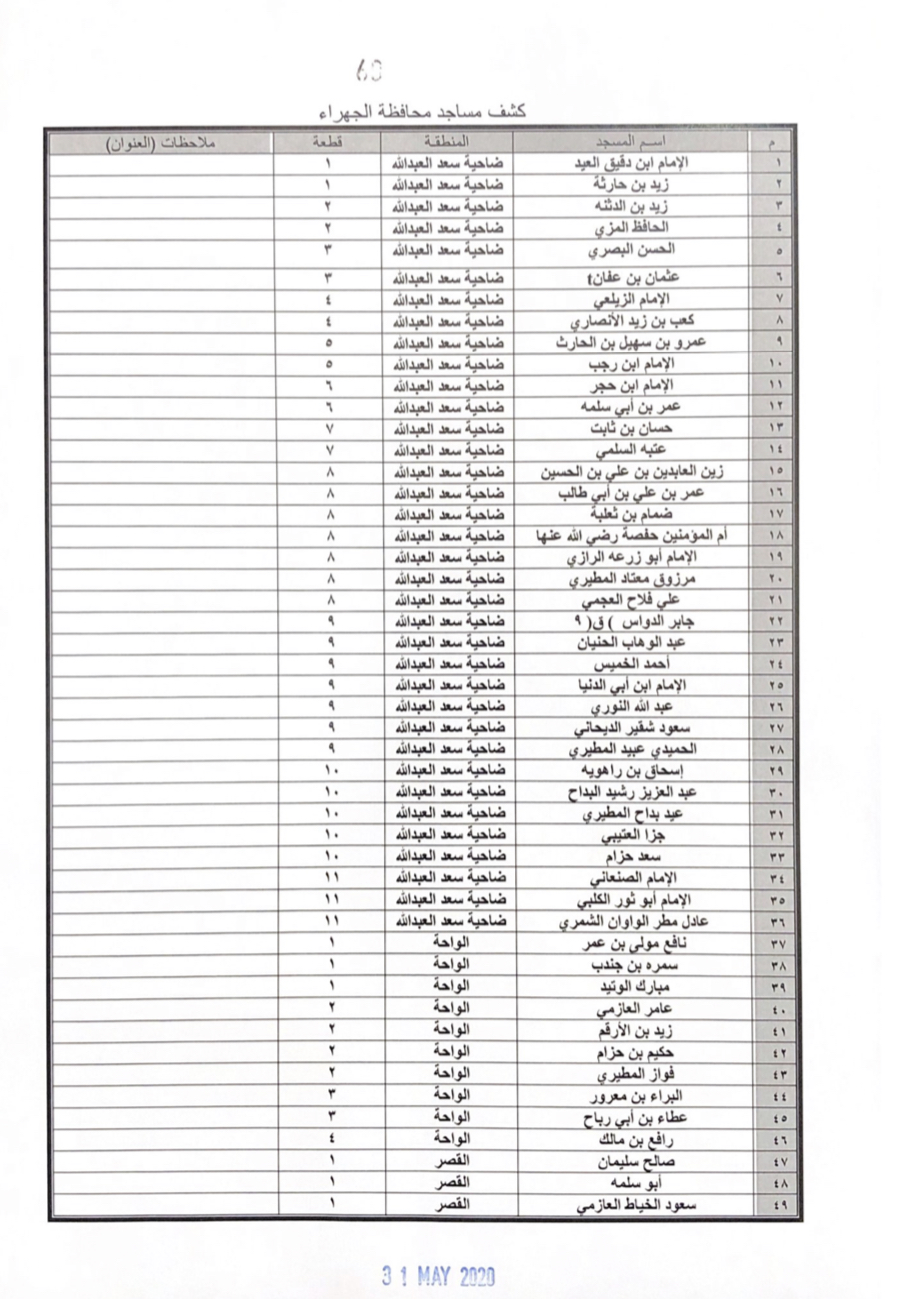 60
كشف مساجد محافظة الجهراء
م اسم المسجد المنطقة قطعة ملاحظات (العنوان)
١ الإمام ابن دقيق العيد ضاحية سعد العبدالله ١
٢ زيد بن حارثة ضاحية سعد العبدالله ١
٣ زيد بن الدثنه ضاحية سعد العبدالله ٢
٤ الحافظ المزي ضاحية سعد العبدالله ٢
٥ الحسن البصري ضاحية سعد العبدالله ٣
٦ عثمان بن عفان t ضاحية سعد العبدالله ٣
٧ الإمام الزيلعي ضاحية سعد العبدالله ٤
٨ كعب بن زيد الأنصاري ضاحية سعد العبدالله ٤
٩ عمرو بن سهيل بن الحارث ضاحية سعد العبدالله ٥
١٠ الإمام ابن رجب ضاحية سعد العبدالله ٥
١١ الإمام ابن حجر ضاحية سعد العبدالله ٦
١٢ عمر بن أبي سلمه ضاحية سعد العبدالله ٦
١٣ حسان بن ثابت ضاحية سعد العبدالله ٧
١٤ عتبه السلمي ضاحية سعد العبدالله ٧
١٥ زين العابدين بن علي بن الحسين ضاحية سعد العبدالله ٨
١٦ عمر بن علي بن أبي طالب ضاحية سعد العبدالله ٨
١٧ ضمام بن ثعلبة ضاحية سعد العبدالله ٨
١٨ أم المؤمنين حفصة رضي الله عنها ضاحية سعد العبدالله ٨
١٩ الإمام أبو زرعه الرازي ضاحية سعد العبدالله ٨
٢٠ مرزوق معتاد المطيري ضاحية سعد العبدالله ٨
٢١ علي فلاح العجمي ضاحية سعد العبدالله ٨
٢٢ جابر الدواس ) ق( ٩ ضاحية سعد العبدالله ٩
٢٣ عبد الوهاب الحنيان ضاحية سعد العبدالله ٩
٢٤ أحمد الخميس ضاحية سعد العبدالله ٩
٢٥ الإمام ابن أبي الدنيا ضاحية سعد العبدالله ٩
٢٦ عبد الله النوري ضاحية سعد العبدالله ٩
٢٧ سعود شقير الديحاني ضاحية سعد العبدالله ٩
٢٨ الحميدي عبيد المطيري ضاحية سعد العبدالله ٩
٢٩ إسحاق بن راهويه ضاحية سعد العبدالله ١٠
٣٠ عبد العزيز رشيد البداح ضاحية سعد العبدالله ١٠
٣١ عيد بداح المطيري ضاحية سعد العبدالله ١٠
٣٢ جزا العتيبي ضاحية سعد العبدالله ١٠
٣٣ سعد حزام ضاحية سعد العبدالله ١٠
٣٤ الإمام الصنعاني ضاحية سعد العبدالله ١١
٣٥ الإمام أبو ثور الكلبي ضاحية سعد العبدالله ١١
٣٦ عادل مطر الواوان الشمري ضاحية سعد العبدالله ١١
٣٧ نافع مولى بن عمر الواحة ١
٣٨ سمره بن جندب الواحة ١
٣٩ مبارك الوتيد الواحة ١
٤٠ عامر العازمي الواحة ٢
٤١ زيد بن الأرقم الواحة ٢
٤٢ حكيم بن حزام الواحة ٢
٤٣ فواز المطيري الواحة ٢
٤٤ البراء بن معرور الواحة ٣
٤٥ عطاء بن أبي رباح الواحة ٣
٤٦ رافع بن مالك الواحة ٤
٤٧ صالح سليمان القصر ١
٤٨ أبو سلمه القصر ١
٤٩ سعود الخياط العازمي القصر ١
31 MAY 2020